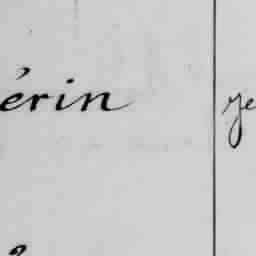 érin ye